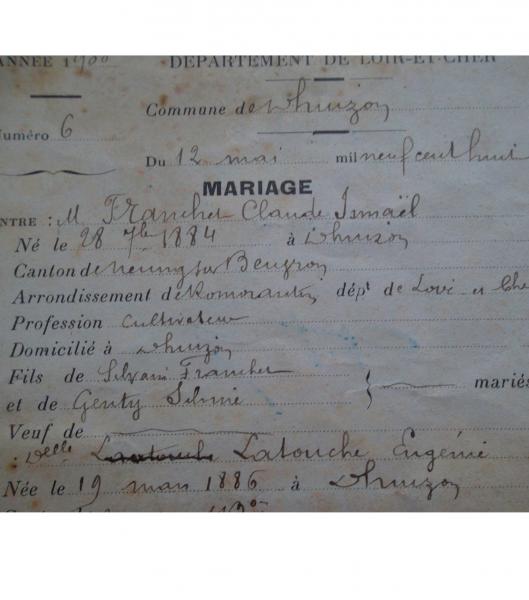 ANNÉE 1908
DÉPARTEMENT DE LOIR-ET-CHER
Commune de Dhuizon
Numéro 6
Du 12 mai mil neuf cent huit
MARIAGE
ENTRE : M Franchet Claude Ismaël
Né le 28 7bre 1884 à Dhuizon
Canton de Neung sur Beuvron
Arrondissement de Romorantin dépt de Loir et Cher
Profession Cultivateur
Domicilié à Dhuizon
Fils de Silvain Franchet
et de Genty Silvinie mariés
Veuf de
: Delle Latouche Eugénie
Née le 19 mars 1886 à Dhuizon